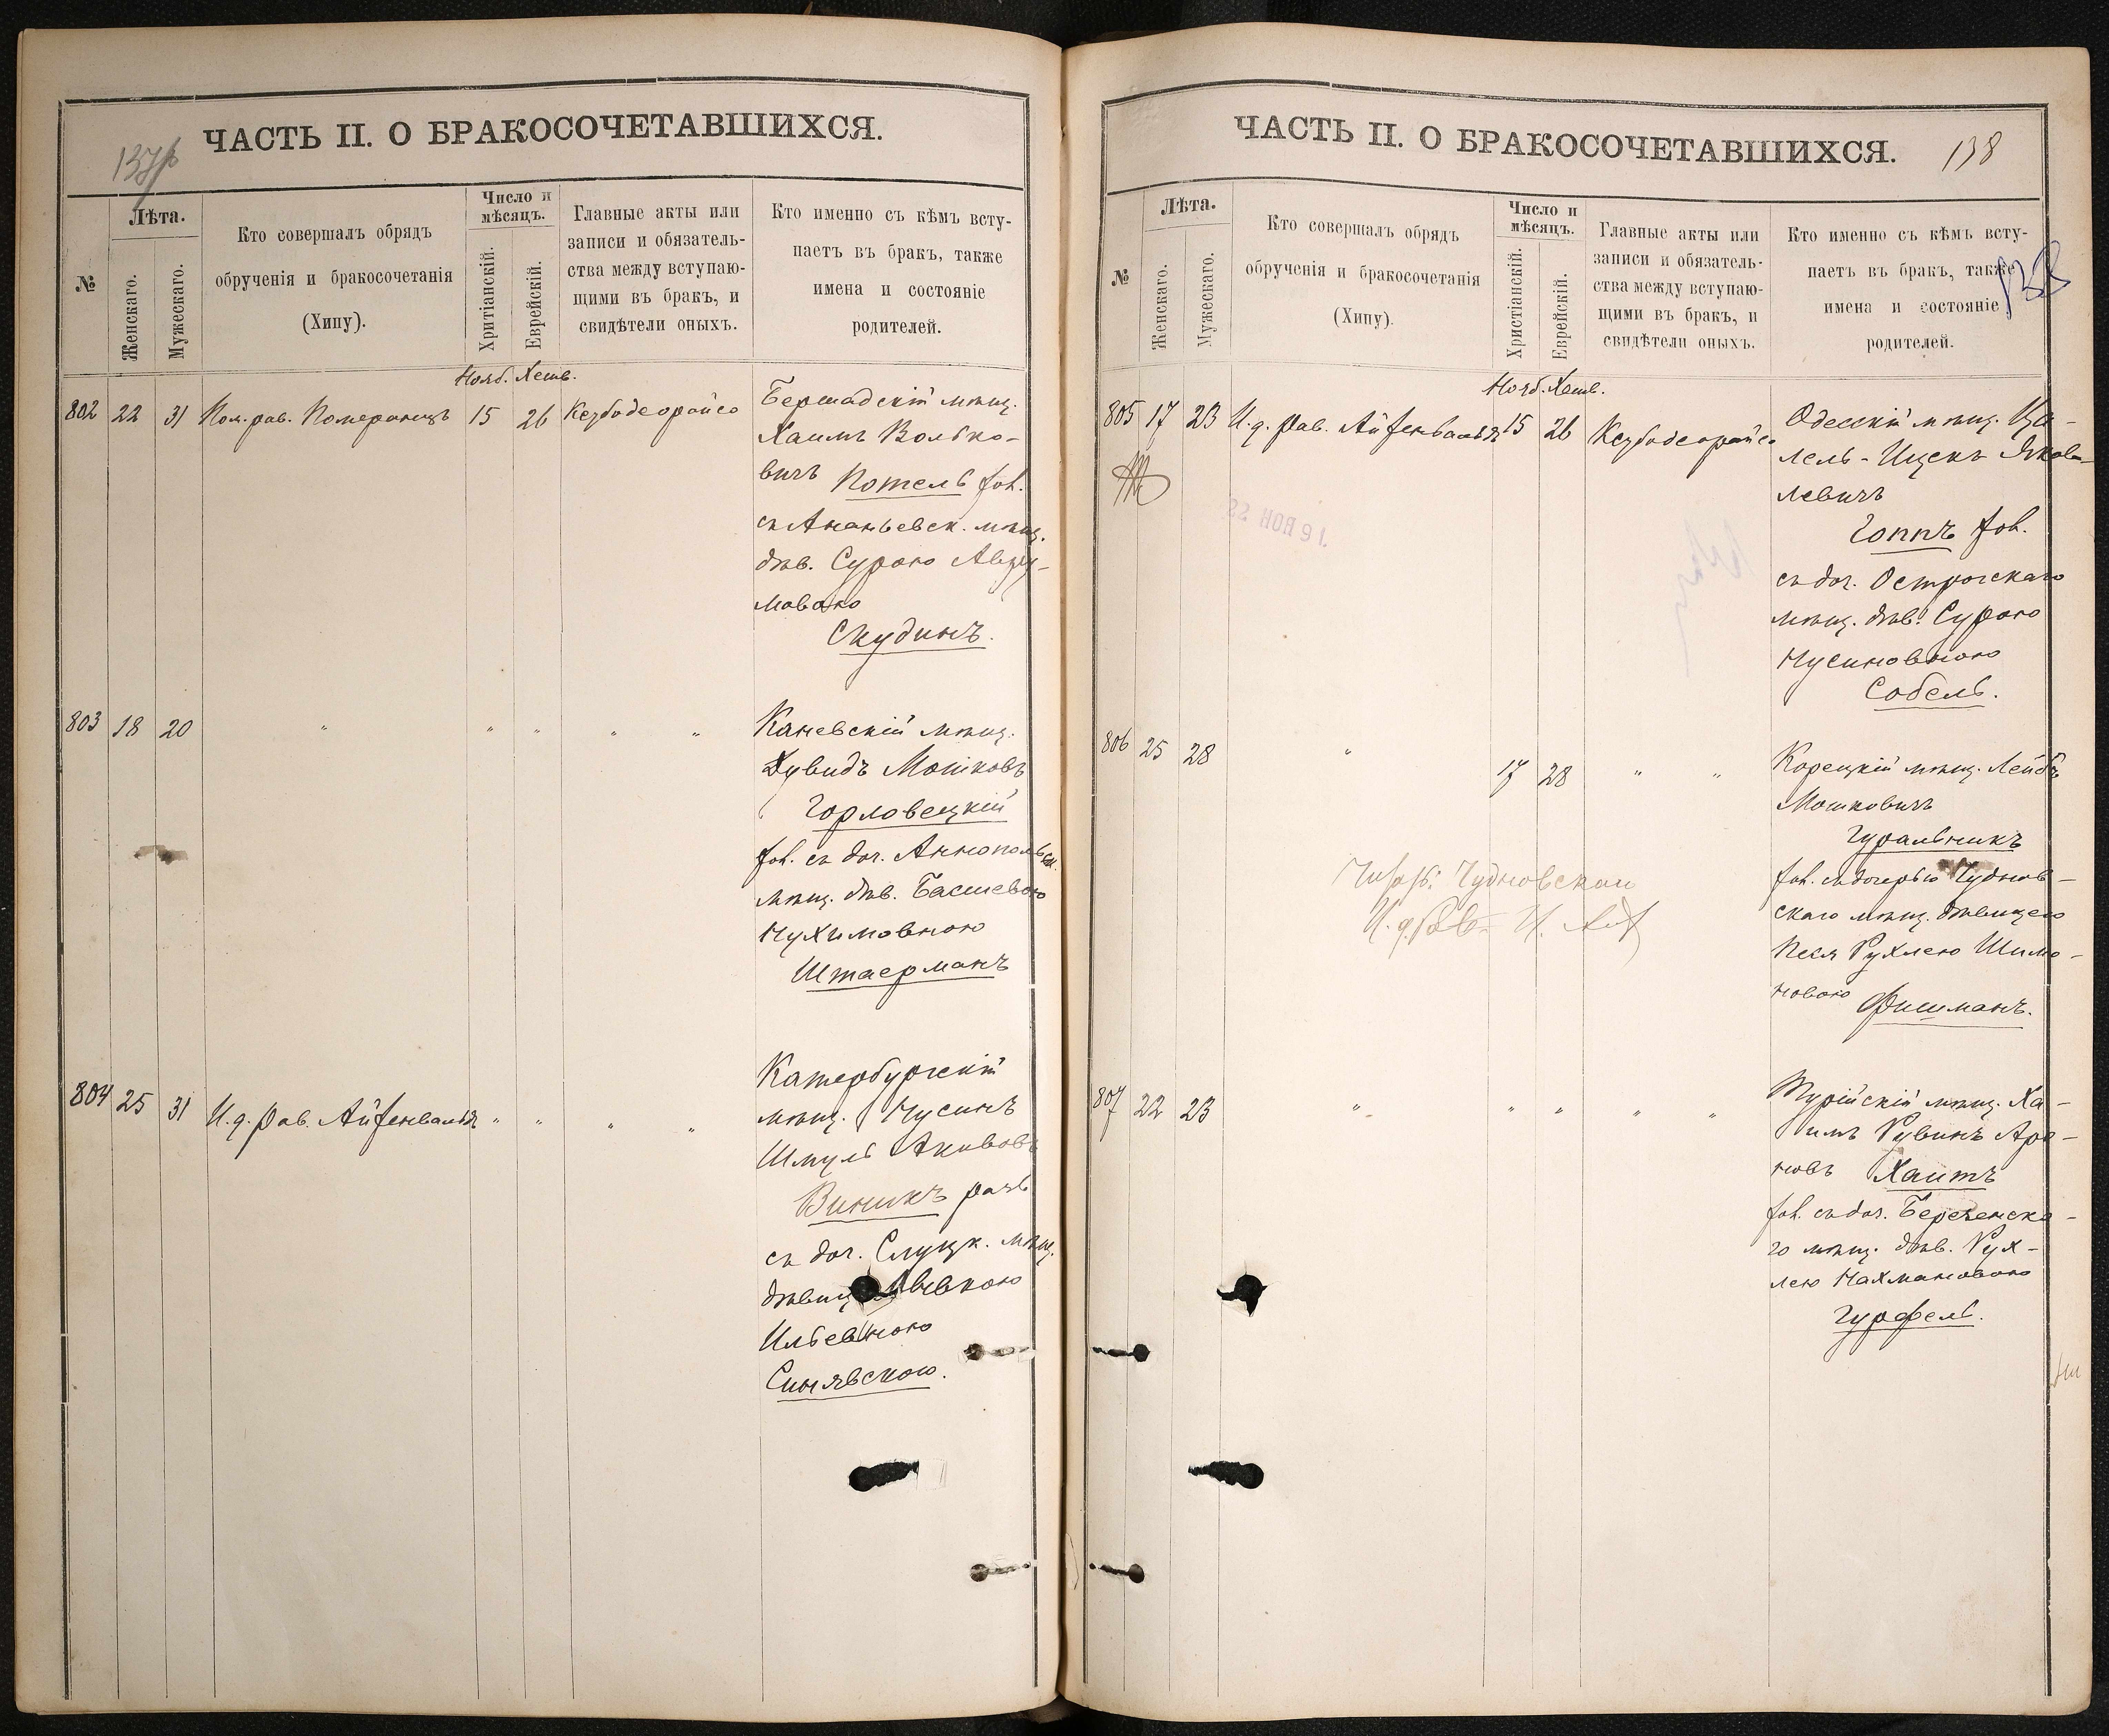 ЧАСТЬ II. О БРАКОСОЧЕТАВШИХСЯ.
№
Лѣта.
Женскаго.
Мужескаго.
Кто совершалъ обрядъ
обрученія и бракосочетанія
(Хипу).
Число и
мѣсяцъ.
Хритіанскій.
Еврейскій.
Главные акты или
записи и обязатель-
ства между вступаю-
щими въ бракъ, и
свидѣтели оныхъ.
Кто именно съ кѣмъ всту-
паетъ въ бракъ, также
имена и состояніе
родителей.
Нояб. Хешв.
802 22 31 Пом. рав. Померанецъ 15 26 Кезбодеорайсо
Бершадскій мѣщ.
Хаимъ Волько-
вичъ Котель хол.
съ Ананьевск. мѣщ.
дѣв. Сурою Авру-
мовою
Скудинъ.
803 18 20 " " " " "
Каневскій мѣщ.
Дувидъ Мошковъ
Горловецкій
хол. съ доч. Аннопольск.
мѣщ. дѣв. Басшевою
Нухимовною
Штаерманъ
804 25 31 И. д. рав. Айзенвальдъ " " " "
Катербургскій
мѣщ. Нусинъ
Шмуль Акивовъ
Виникъ разв
съ доч. Слуцк. мѣщ.
Ильевною
Синявскою.
ЧАСТЬ II. О БРАКОСОЧЕТАВШИХСЯ.
138
138
№
Лѣта.
Женскаго.
Мужескаго.
Кто совершалъ обрядъ
обрученія и бракосочетанія
(Хипу).
Число и
мѣсяцъ.
Христіанскій.
Еврейскій.
Главные акты или
записи и обязатель-
ства между вступаю-
щими въ бракъ, и
свидѣтели оныхъ.
Кто именно съ кѣмъ всту-
паетъ въ бракъ, также
имена и состояніе
родителей.
Нояб. Хешв.
805 17 23 И. д. рав. Айзенвальдъ 15 26 Кезбодеорайсо
Одесскій мѣщ. Ца-
лель-Ицекъ Янкове-
левичъ
Гоппъ хол.
съ доч. Острогскаго
мѣщ. дѣв. Сурою
Нусиновною
Собель.
806 25 28 " 17 28 " "
Корецкій мѣщ. Лейбъ
Мошковичъ
Гуральникъ
хол. съ дочерью Чуднов-
скаго мѣщ. дѣвицею
Песя Рухлею Шимо-
новою Фишманъ.
Чуднового
807 22 23 " " " " "
Турійскій мѣщ. Ха-
имъ Рувинъ Аро-
новъ Хаитъ
хол. съ доч. Березенска-
го мѣщ. дѣв. Рух-
лею Нахмановою
Гурфель.